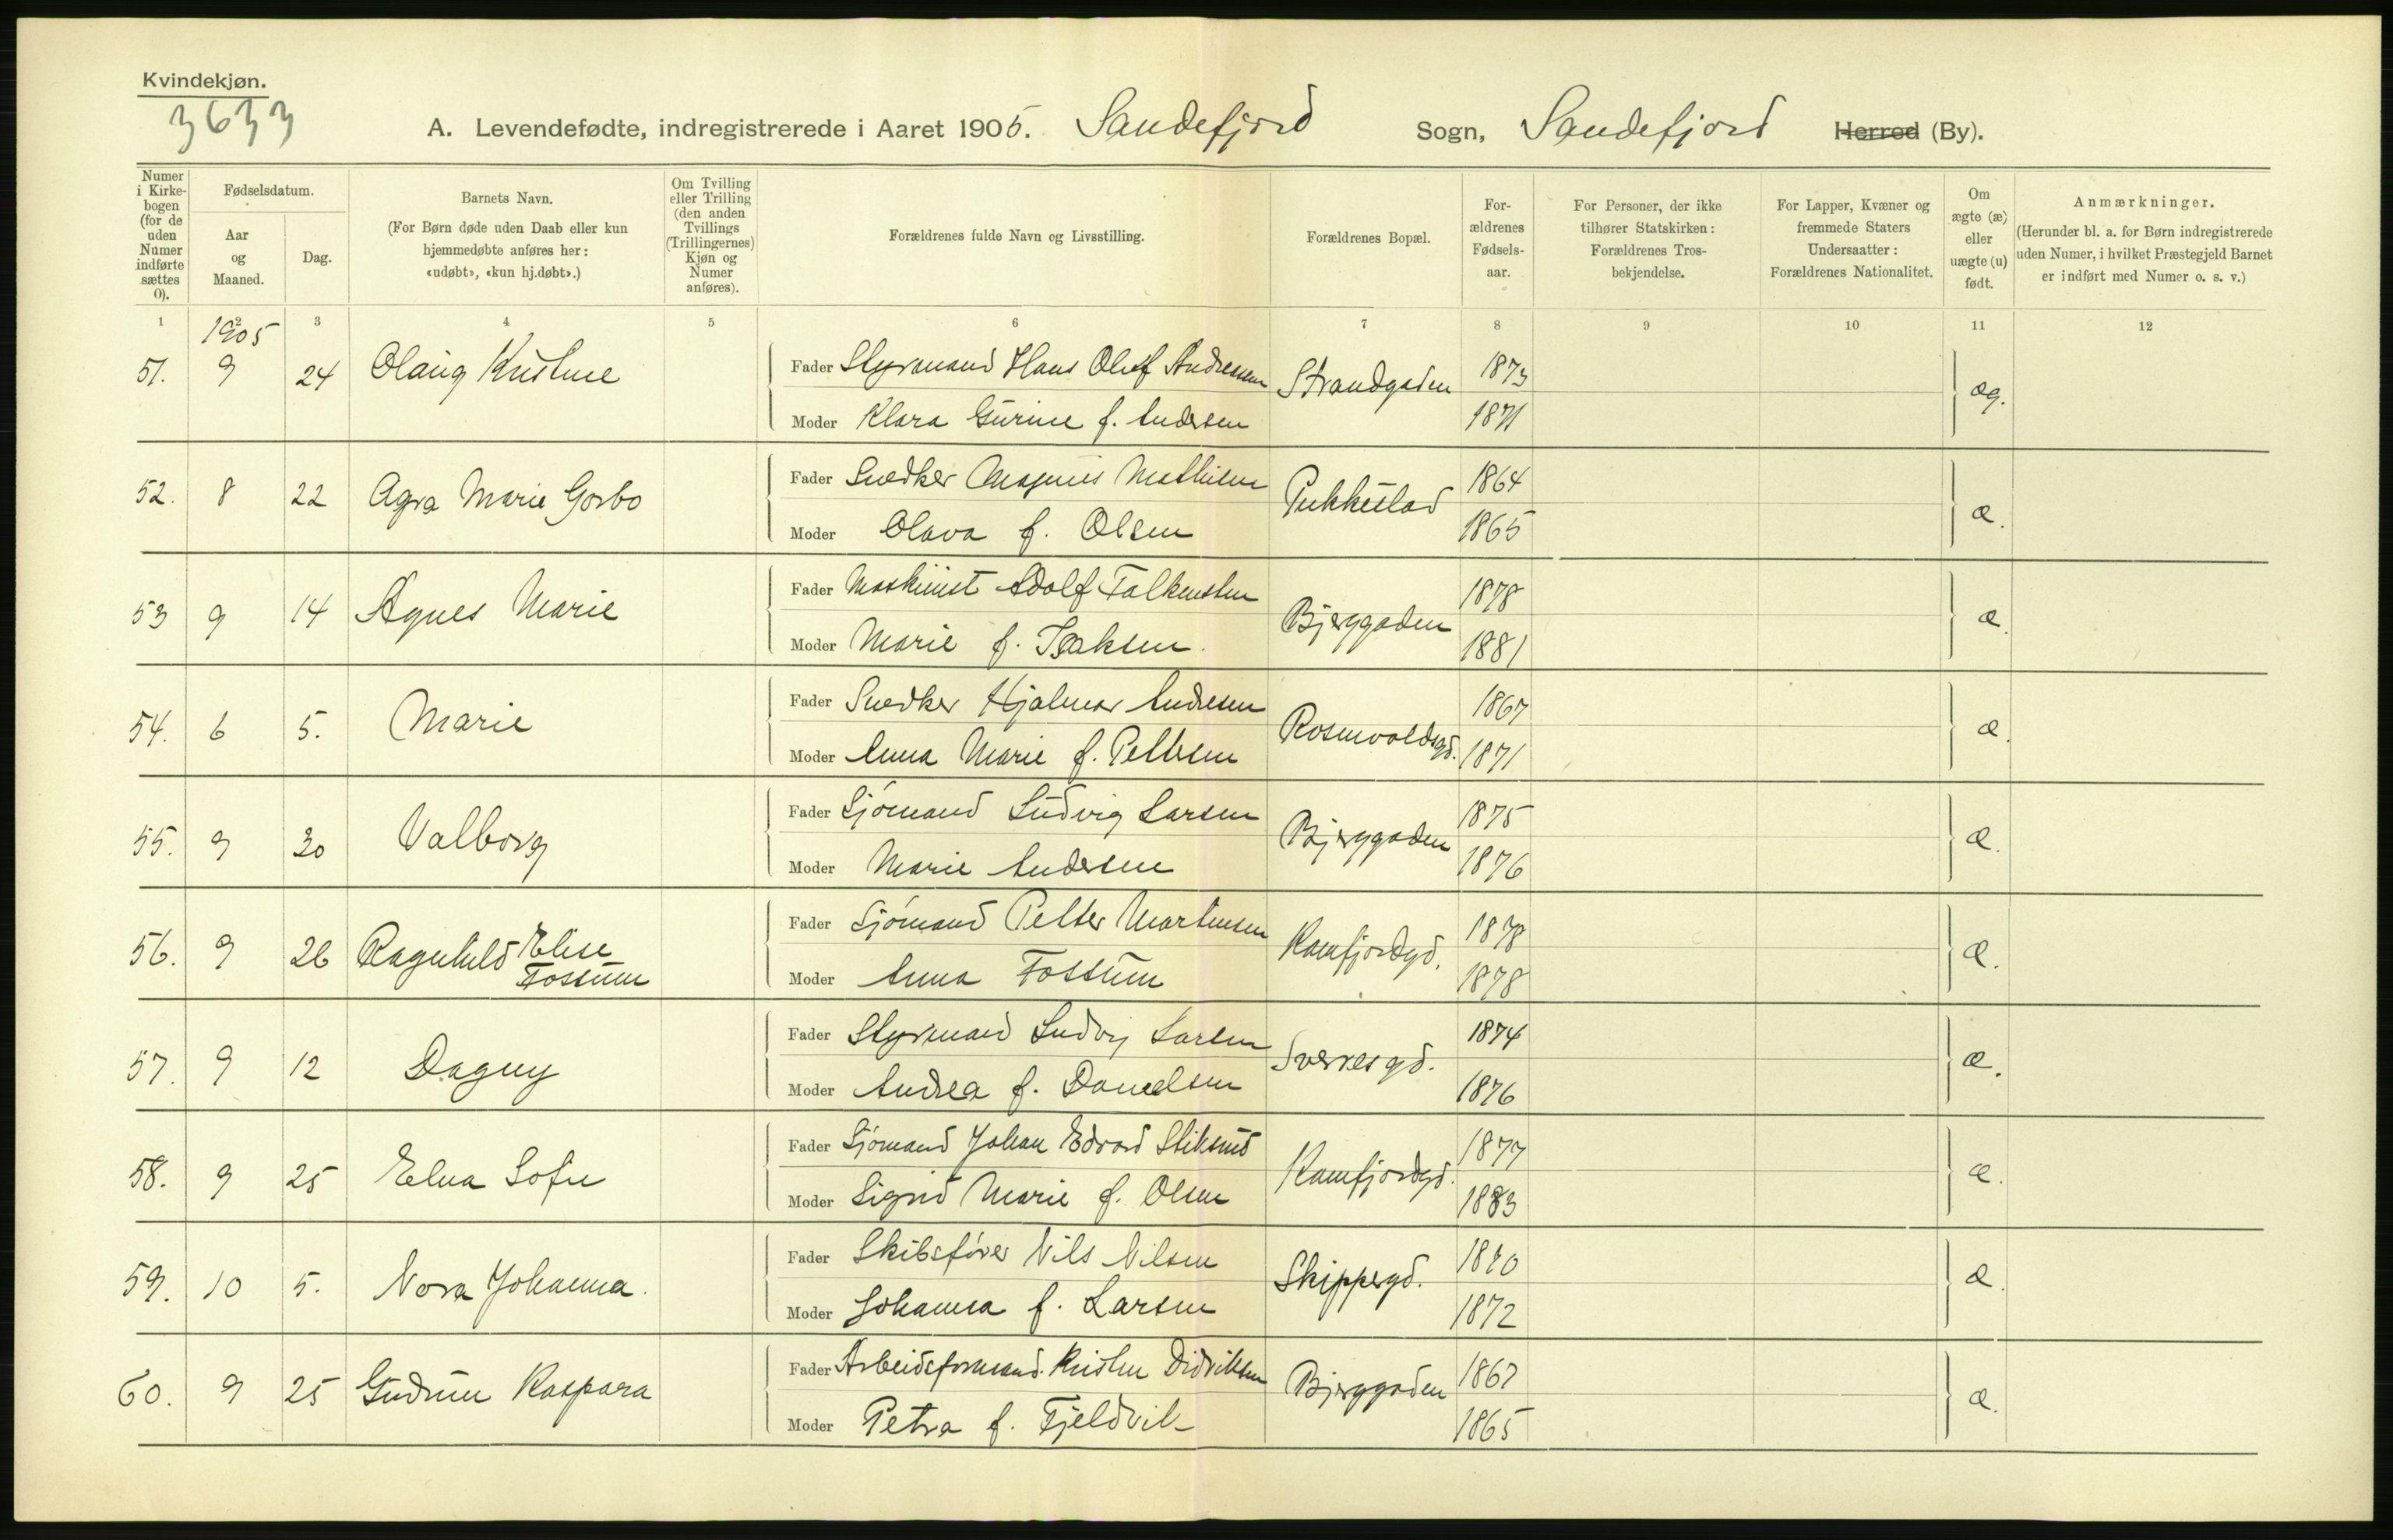 Kvindekjøn.
3633
A. Levendefødte, indregistrerede i Aaret 1905. Sandefjord Sogn, Sandefjord Herred (By).
Numer i Kirkebogen (for de uden Numer indførte sættes 0).
Fødselsdatum.
Aar og Maaned.
Dag.
Barnets Navn.
(For Børn døde uden Daab eller kun hjemmedøbte anføres her: «udøbt», «kun hj.døbt».)
Om Tvilling eller Trilling (den anden Tvillings (Trillingernes) Kjøn og Numer anføres).
Forældrenes fulde Navn og Livsstilling.
Forældrenes Bopæl.
Forældrenes Fødselsaar.
For Personer, der ikke tilhører Statskirken: Forældrenes Trosbekjendelse.
For Lapper, Kvæner og fremmede Staters Undersaatter: Forældrenes Nationalitet.
Om ægte (æ) eller uægte (u) født.
Anmærkninger.
(Herunder bl. a. for Børn indregistrerede uden Numer, i hvilket Præstegjeld Barnet er indført med Numer o. s. v.)
1 2 3 4 5 6 7 8 9 10 11 12
1905
51. 9 24 Olaug Kristine Fader Styrmand Hans Olaf Andressen Strandgaden 1873 æg.
Moder Klara Gurine f. Andersen 1871
52. 8 22 Agra Marie Gorbo Fader Snedker Magnus Mathisen Pukkestad 1864 æ.
Moder Olava f. Olsen 1865
53 9 14 Agnes Marie Fader Maskinist Adolf Falkensten Bjerggaden 1878 æ.
Moder Marie f. Isaksen. 1881
54. 6 5. Marie Fader Snedker Hjalmar Andresen Rosenvoldsgd. 1867 æ.
Moder Anna Marie f. Pettersen 1871
55. 9 30 Valborg Fader Sjömand Ludvig Larsen Bjerggaden 1875 æ.
Moder Marie Andersen 1876
56. 9 26 Ragnhild Elise Fossum Fader Sjömand Petter Martinsen Kamfjordgd. 1878 æ.
Moder Anna Fossum 1878
57. 9 12 Dagny Fader Styrmand Ludvig Larsen Sverresgd. 1874 æ.
Moder Andrea f. Danielsen 1876
58. 9 25 Elna Sofie Fader Sjömand Johan Edvard Stiksrud Kamfjordgd. 1877 æ.
Moder Sigrid Marie f. Olsen 1883
59. 10 5. Nora Johanna. Fader Skibsfører Nils Nilsen Skippergd. 1870 æ.
Moder Johanna f. Larsen 1872
60. 9 25 Gudrun Kaspara Fader Arbeidsformand. Kristen Didriksen Bjerggaden 1867 æ.
Moder Petra f. Fjeldvik 1865